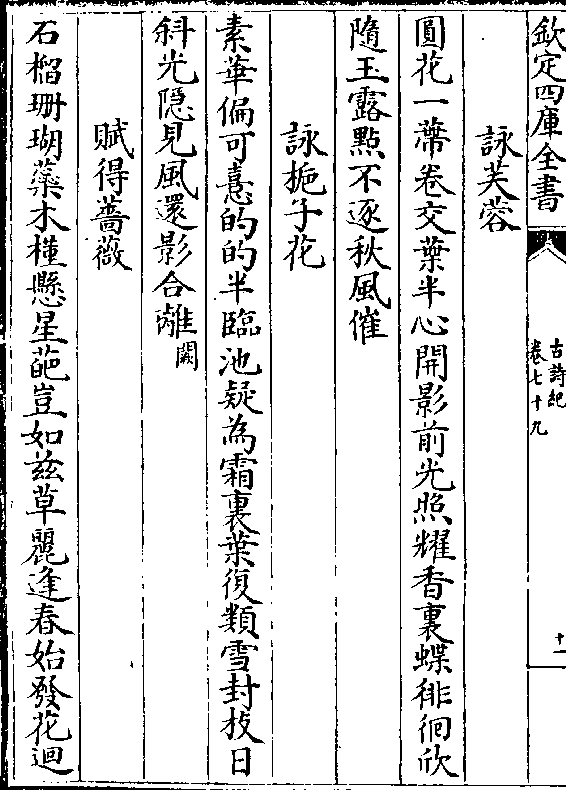 欽定四庫全書
古詩紀
卷七十九
十一
詠芙蓉
圓花一蔕卷交葉半心開影前光照耀香裏蝶徘徊欣
隨玉露點不逐秋風催
詠梔子花
素華偏可憙的的半臨池疑為霜裏葉復類雪封枝日
斜光隠見風還影合離闕
賦得薔薇
石榴珊瑚蘂木槿懸星葩豈如兹草麗逢春始發花迴